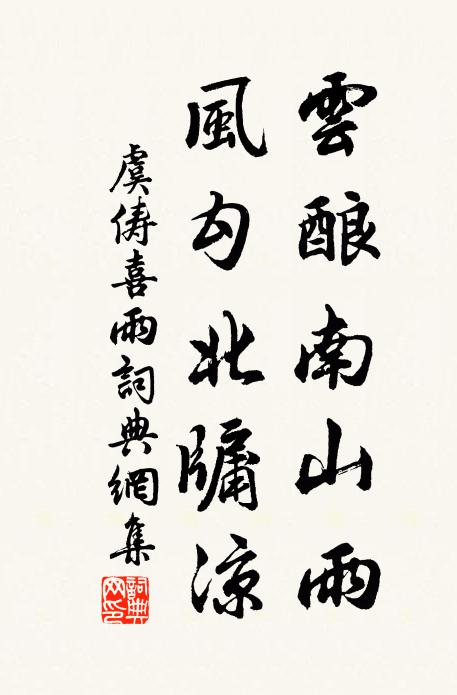 雲酿南山雨
風勾北牖涼
虞儔喜雨詞典網集
詞典網印